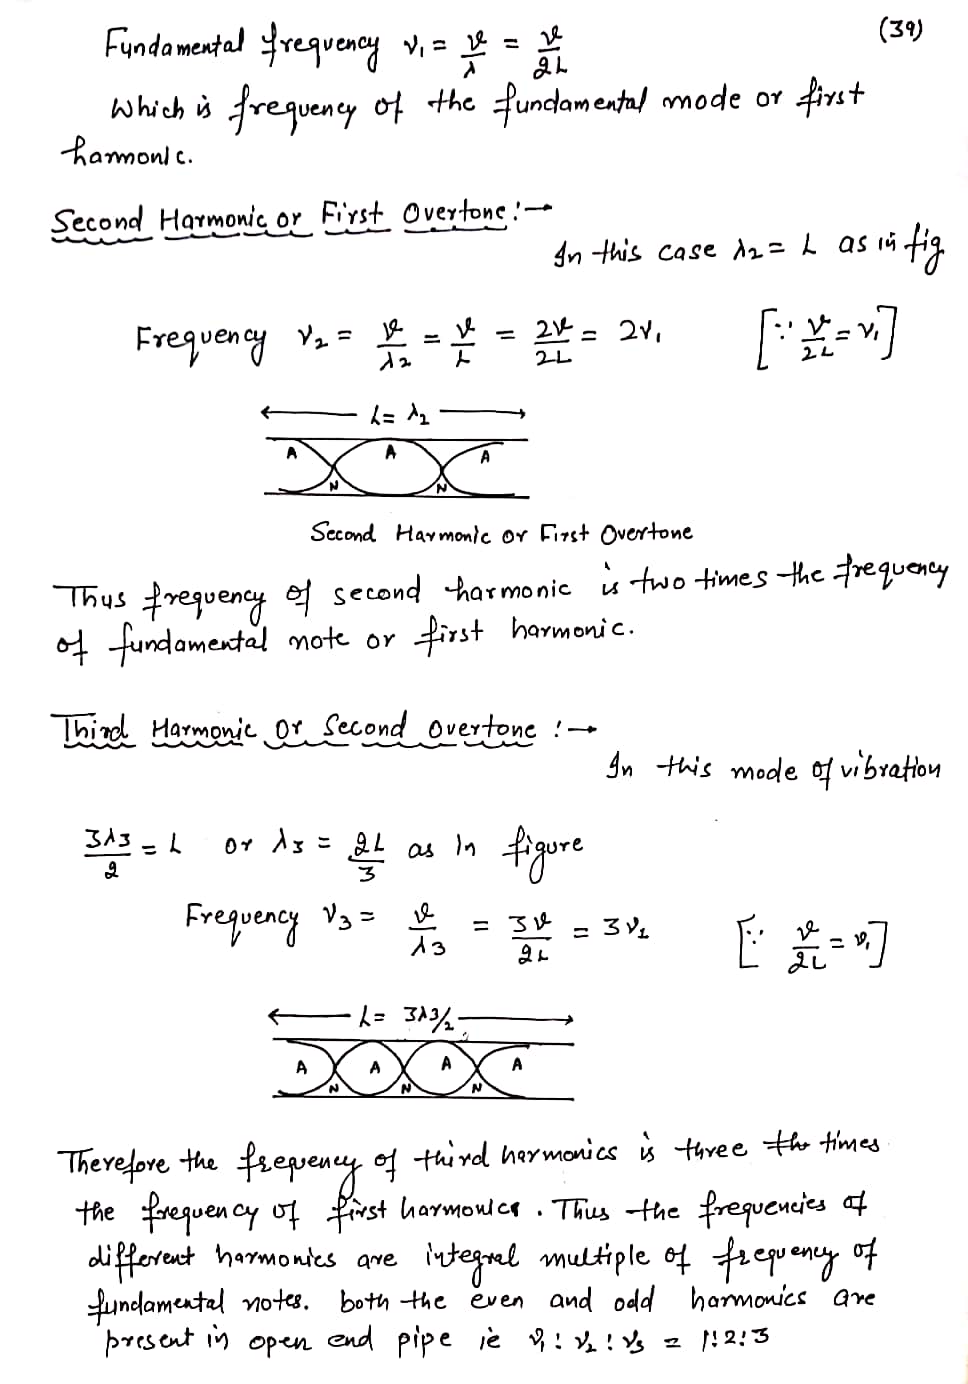 (39)
Fundamental frequency ν₁ = v/λ = v/2L
Which is frequency of the fundamental mode or first
harmonic.
Second Harmonic or First Overtone :→
In this case λ2 = L as in fig
Frequency ν₂ = v/λ2 = v/L = 2v/2L = 2ν₁ [∵ v/2L = ν₁]
L = λ2
A A A
N N
Second Harmonic or First Overtone
Thus frequency of second harmonic is two times the frequency
of fundamental note or first harmonic.
Third Harmonic or Second Overtone :→
In this mode of vibration
3λ3/2 = L or λ3 = 2L/3 as in figure
Frequency ν3 = v/λ3 = 3v/2L = 3ν₁ [∵ v/2L = ν₁]
L = 3λ3/2
A A A A
N N N
Therefore the frequency of third harmonics is three the times
the frequency of first harmonics. Thus the frequencies of
different harmonics are integral multiple of frequency of
fundamental notes. both the even and odd harmonics are
present in open end pipe ie ν₁ : ν₂ : ν3 = 1:2:3